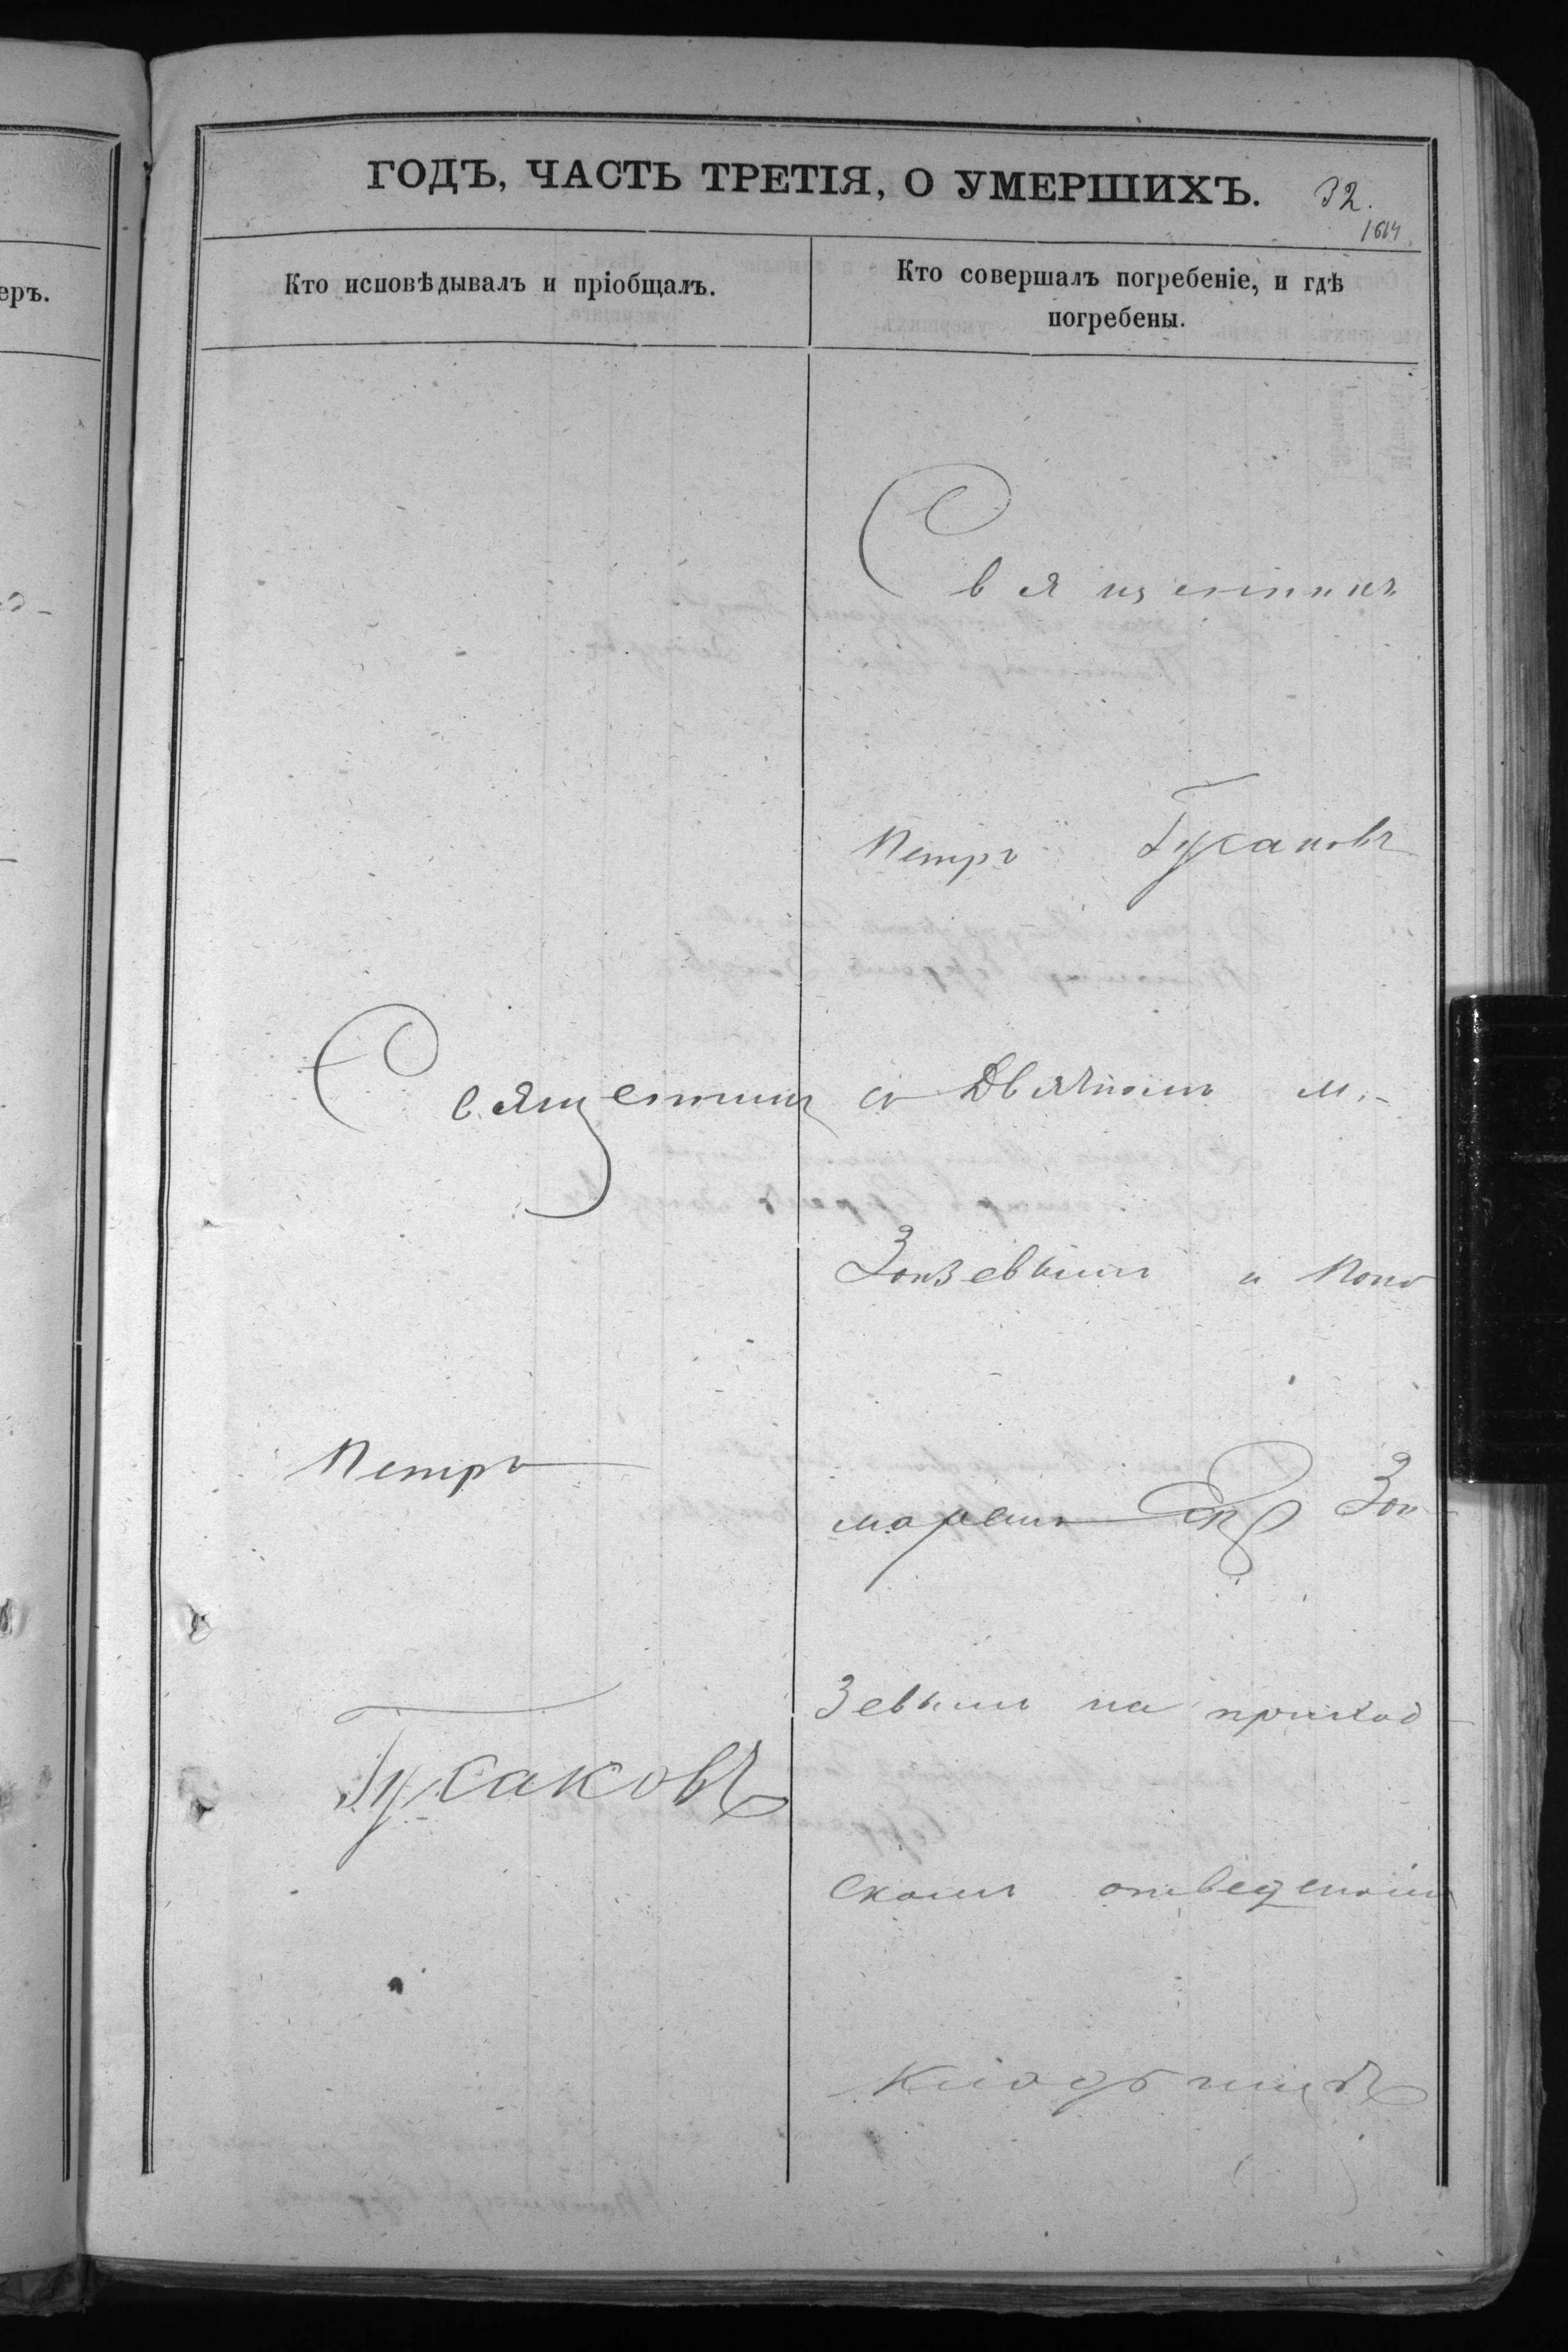 ГОДЪ, ЧАСТЬ ТРЕТІЯ, О УМЕРШИХЪ.
32.
1614
еръ.
Кто исповѣдывалъ и пріобщалъ.
Кто совершалъ погребеніе, и гдѣ
погребены.
Священникъ
Петръ
Гусаковъ
Священникъ
Петръ Гусаковъ
съ Дьячкомъ М.
Зонзевымъ и Поно
маремъ Зон
зевымъ на приход
скомъ отведеномъ
кладбищѣ